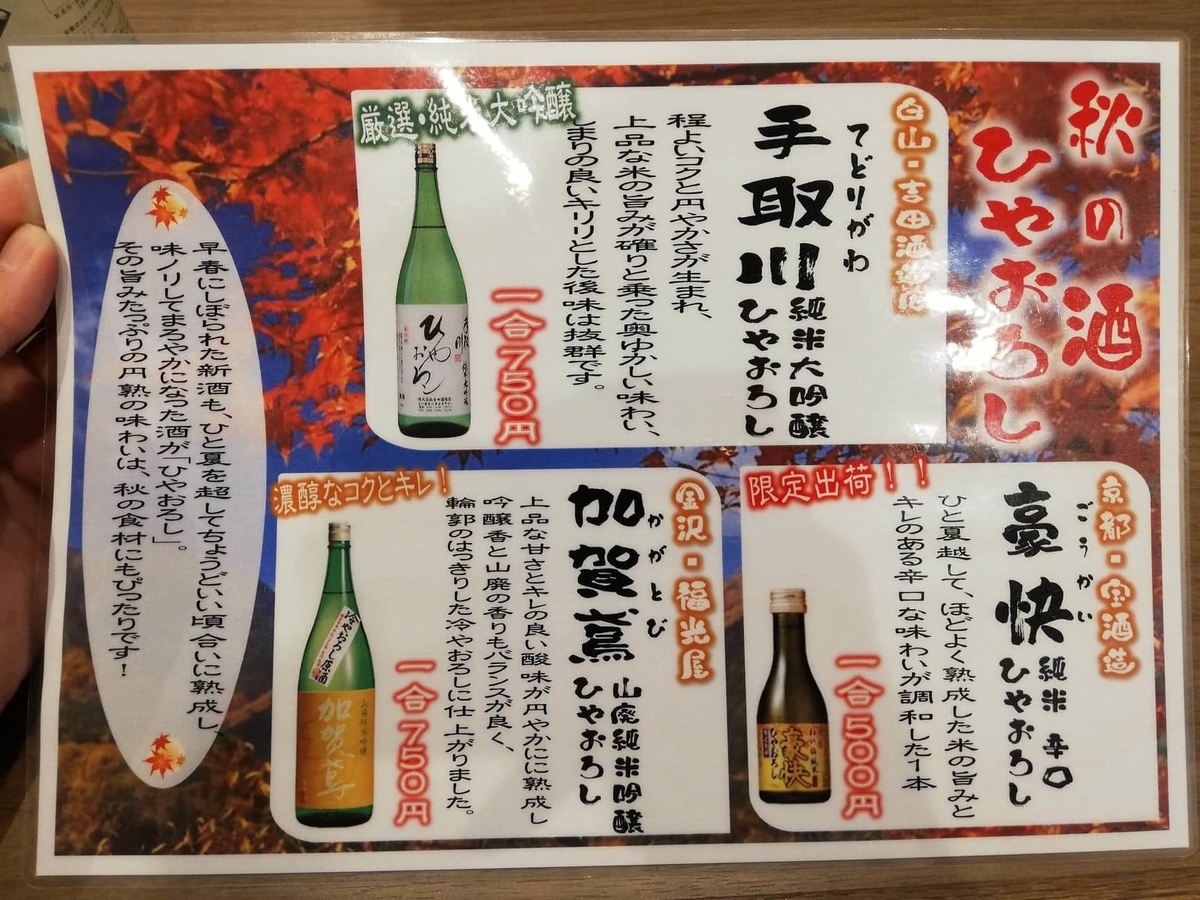 秋の酒
ひやおろし
白山・吉田酒造店
てどりがわ
手取川
純米大吟醸
ひやおろし
程よいコクと円やかさが生まれ、
上品な米の旨みが確りと乗った奥ゆかしい味わい、
しまりの良いキリリとした後味は抜群です。
一合750円
厳選・純米大吟醸
ひやおろし
京都・宝酒造
ごうかい
豪快
純米 辛口
ひやおろし
ひと夏越して、ほどよく熟成した米の旨みと
キレのある辛口な味わいが調和した1本
一合500円
限定出荷！！
豪快
ひやおろし
金沢・福光屋
かがとび
加賀鳶
山廃純米吟醸
ひやおろし
上品な甘さとキレの良い酸味が円やかにに熟成し
吟醸香と山廃の香りもバランスが良く、
輪郭のはっきりした冷やおろしに仕上がりました。
一合750円
濃醇なコクとキレ！
冷やおろし原酒
山廃純米吟醸
加賀鳶
早春にしぼられた新酒も、ひと夏を超してちょうどいい頃合いに熟成し、
味ノリしてまろやかになった酒が「ひやおろし」。
その旨みたっぷりの円熟の味わいは、秋の食材にもぴったりです！